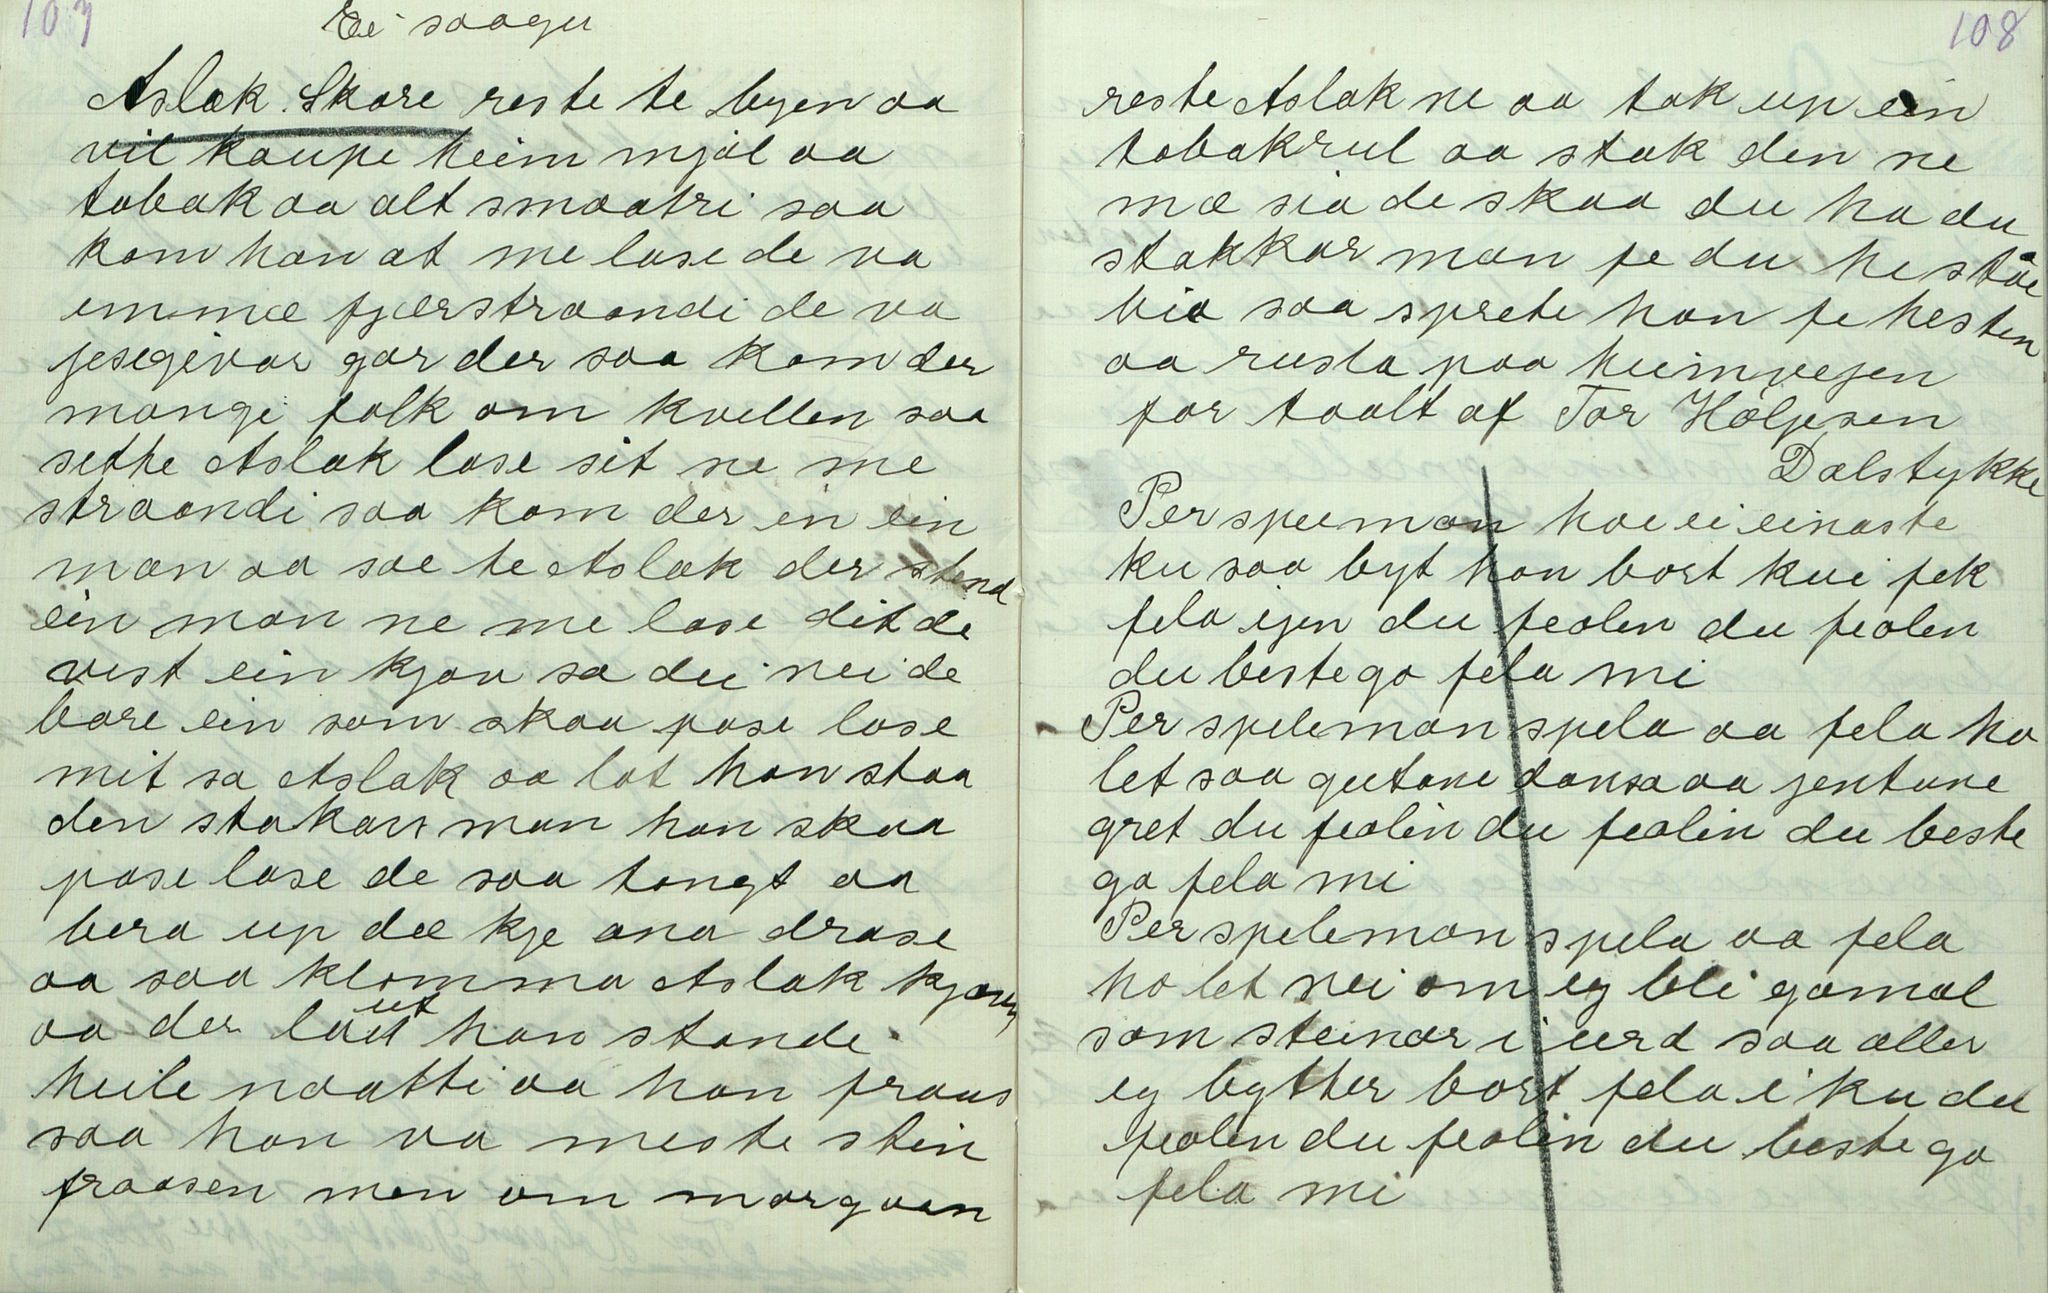 107
Ei saagu
Aslak Skore reste te byen aa
vil kaupe heim mjøl aa
tobak aa alt smaatri saa
kom han at me lase de va
emmæ fjærstraandi de va
jesegivar gar der saa kom der
mangi folk om kvellen saa
sethe Aslak lase sit ne me
straandi saa kom der en ein
man aa sae te Aslak der stend
ein man ne me lase dit de
vist ein kjøn sa du nei de
bare ein som skaa pase lase
mit sa Aslak aa lat han staa
den stakars man han skaa
pase lase de saa tongt aa
bera up dæ kje ana drase
aa saa klemma Aslak kjøen
aa der laut han stande
heile naatti aa han fraus
saa han va meste stein
fraasen men om morgaen
108
reste Aslak ne aa tok up ein
tobakrul aa stak den ne
mæ sia de skaa du ha du
stakkar man fe du he ståe
bia saa sprete han fe hesten
aa rusla paa heimvejen
for taalt af Tor Høljesen
Dalstykke
Per speeman hae ei einaste
ku saa byt han bort kui fek
fela ijen du feolen du feolen
du beste go fela mi
Per speleman spela aa fela ho
let saa gutane dansa aa jentune
gret du feolin du feolin du beste
go fela mi
Per speleman spela aa fela
ho let nei om eg bli gamal
som steinar i urd saa aller
eg byther bort fela i ku du
feolen du feolin du beste go
fela mi